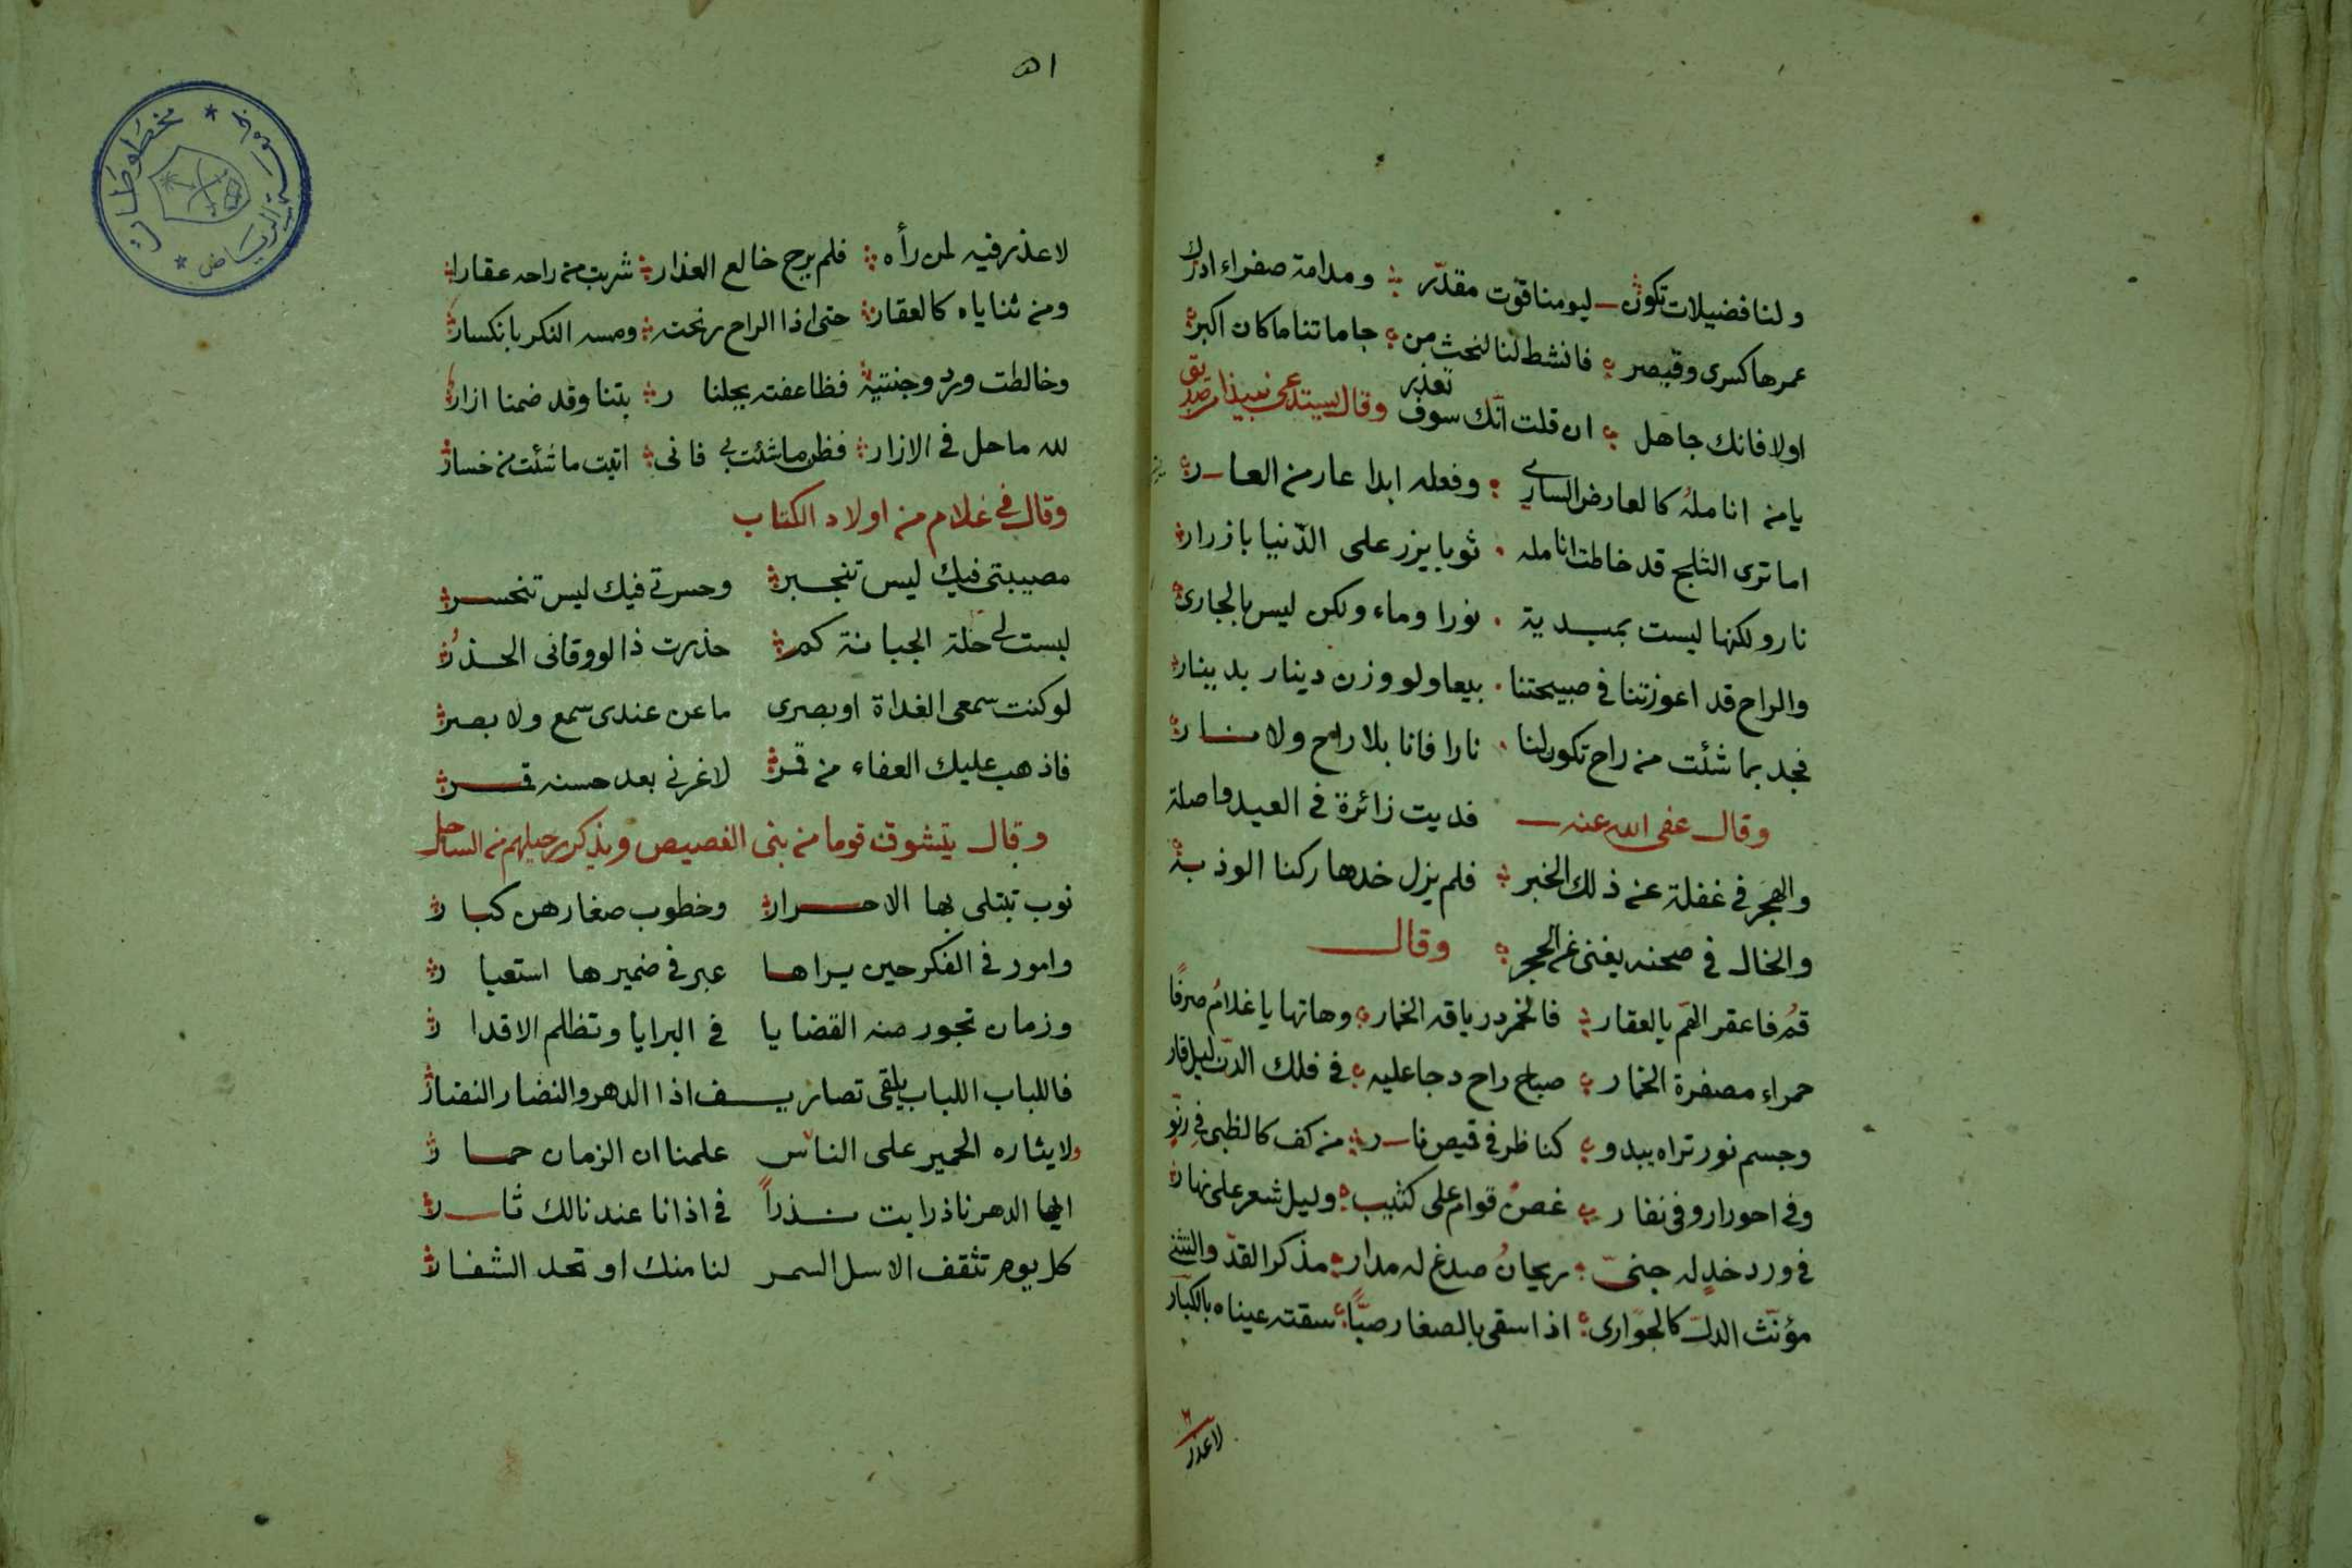 ولنا فضيلات تكون ليومنا قوت مقدّر ومدامة صفراء ادرك
عمرها كسرى وقيصر فانشط لنا لنحث من جاماتنا ما كان اكبر
اولا فانك جاهل ان قلت انّك سوف تعذر وقال يستدعى نبيذا من صديق
يا من انامله كالعارض الساري وفعله ابدا عار من العار
اما ترى الثلج قد خاطت انامله ثوبا يزر على الدّنيا بازرار
نار ولكنها ليست بمبدية نورا وماء ولكن ليس بالجارى
والراح قد اعوزتنا في صبيحتنا بيعا ولو وزن دينار بدينار
فجد بما شئت من راح تكون لنا نارا فانا بلا راح ولا نار
وقال عفى الله عنه فديت زائرة في العيد واصلة
والهجر في غفلة عن ذلك الخبر فلم يزل خدها ركنا الوذ به
والخال في صحنه يغنى عن الحجر وقال
قم فاعقر الهم بالعقار فالخمر درياقه الخمار وهاتها يا غلام صرفا
حمراء مصفرة الخمار صباح راح دجا عليه في فلك الدن ليل قار
وجسم نور تراه يبدو كناظر في قيص نار من كف كالظبي في رنو
وفي احورار وفي نفار غصن قوام على كثيب وليل شعر على نهار
في ورد خد له جنىّ ريحان صدغ له مدار مذكر القدّ والتثني
مؤنّث الدلّ كالجوارى اذا سقى بالصغار صبّا سقته عيناه بالكبار
لاعذر
٥١
لا عذر فيه لمن رأه فلم يرج خالع العذار شربت من راحه عقارا
ومن ثناياه كالعقار حتى اذا الراح رنحته ومسه السكر بانكسار
وخالطت ورد وجنتيه فظاعفته بجلنار بتنا وقد ضمنا ازار
لله ما حل في الازار فظن ما شئت بي فانى اتيت ما شئت من خسار
وقال في غلام من اولاد الكتاب
مصيبتى فيك ليس تنجبر وحسرتي فيك ليس تنحسر
لبست لي حلة الجبانة كم حذرت ذا لو وقانى الحذر
لو كنت سمعى الغداة او بصرى ما عن عندى سمع ولا بصر
فاذهب عليك العفاء من قمر لا غرني بعد حسنه قمر
وقال يتشوق قوما من بنى الفصيص ويذكر رحيلهم من الساحل
نوب تبتلى بها الاحرار وخطوب صغارهن كبار
وامور في الفكر حين يراها عبر في ضميرها استعبار
وزمان تجور منه القضايا في البرايا وتظلم الاقدار
فاللباب اللباب يلقى تصاريف اذا الدهر والنضار النضار
ولايثاره الحمير على الناس علمنا ان الزمان حمار
ايها الدهر ناذرا بت نذرا في اذانا عند نالك ثار
كل يوم تثقف الاسل السمر لنا منك او تحد الشفار
مخطوطات الرياض